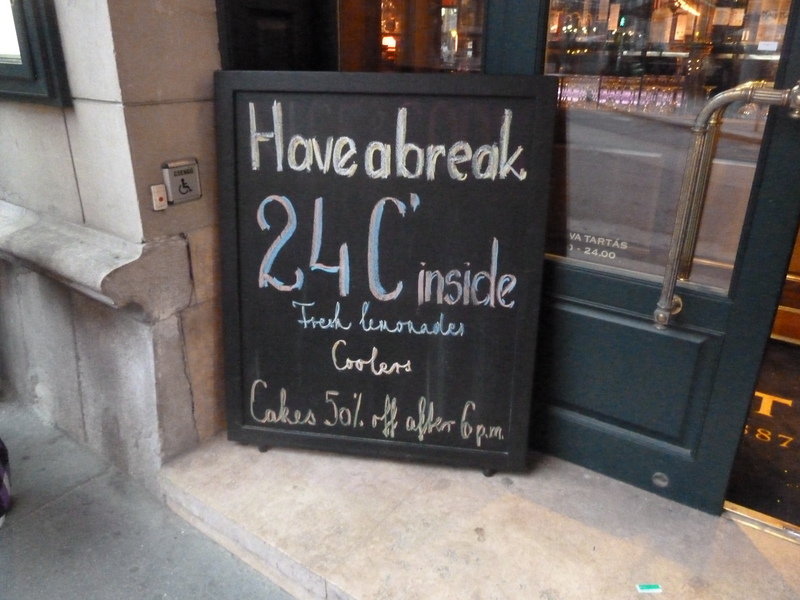 Have a break
24 C° inside
Fresh lemonades
Coolers
Cakes 50% off after 6 p.m.
VA TARTÁS
0 - 24.00
T
87